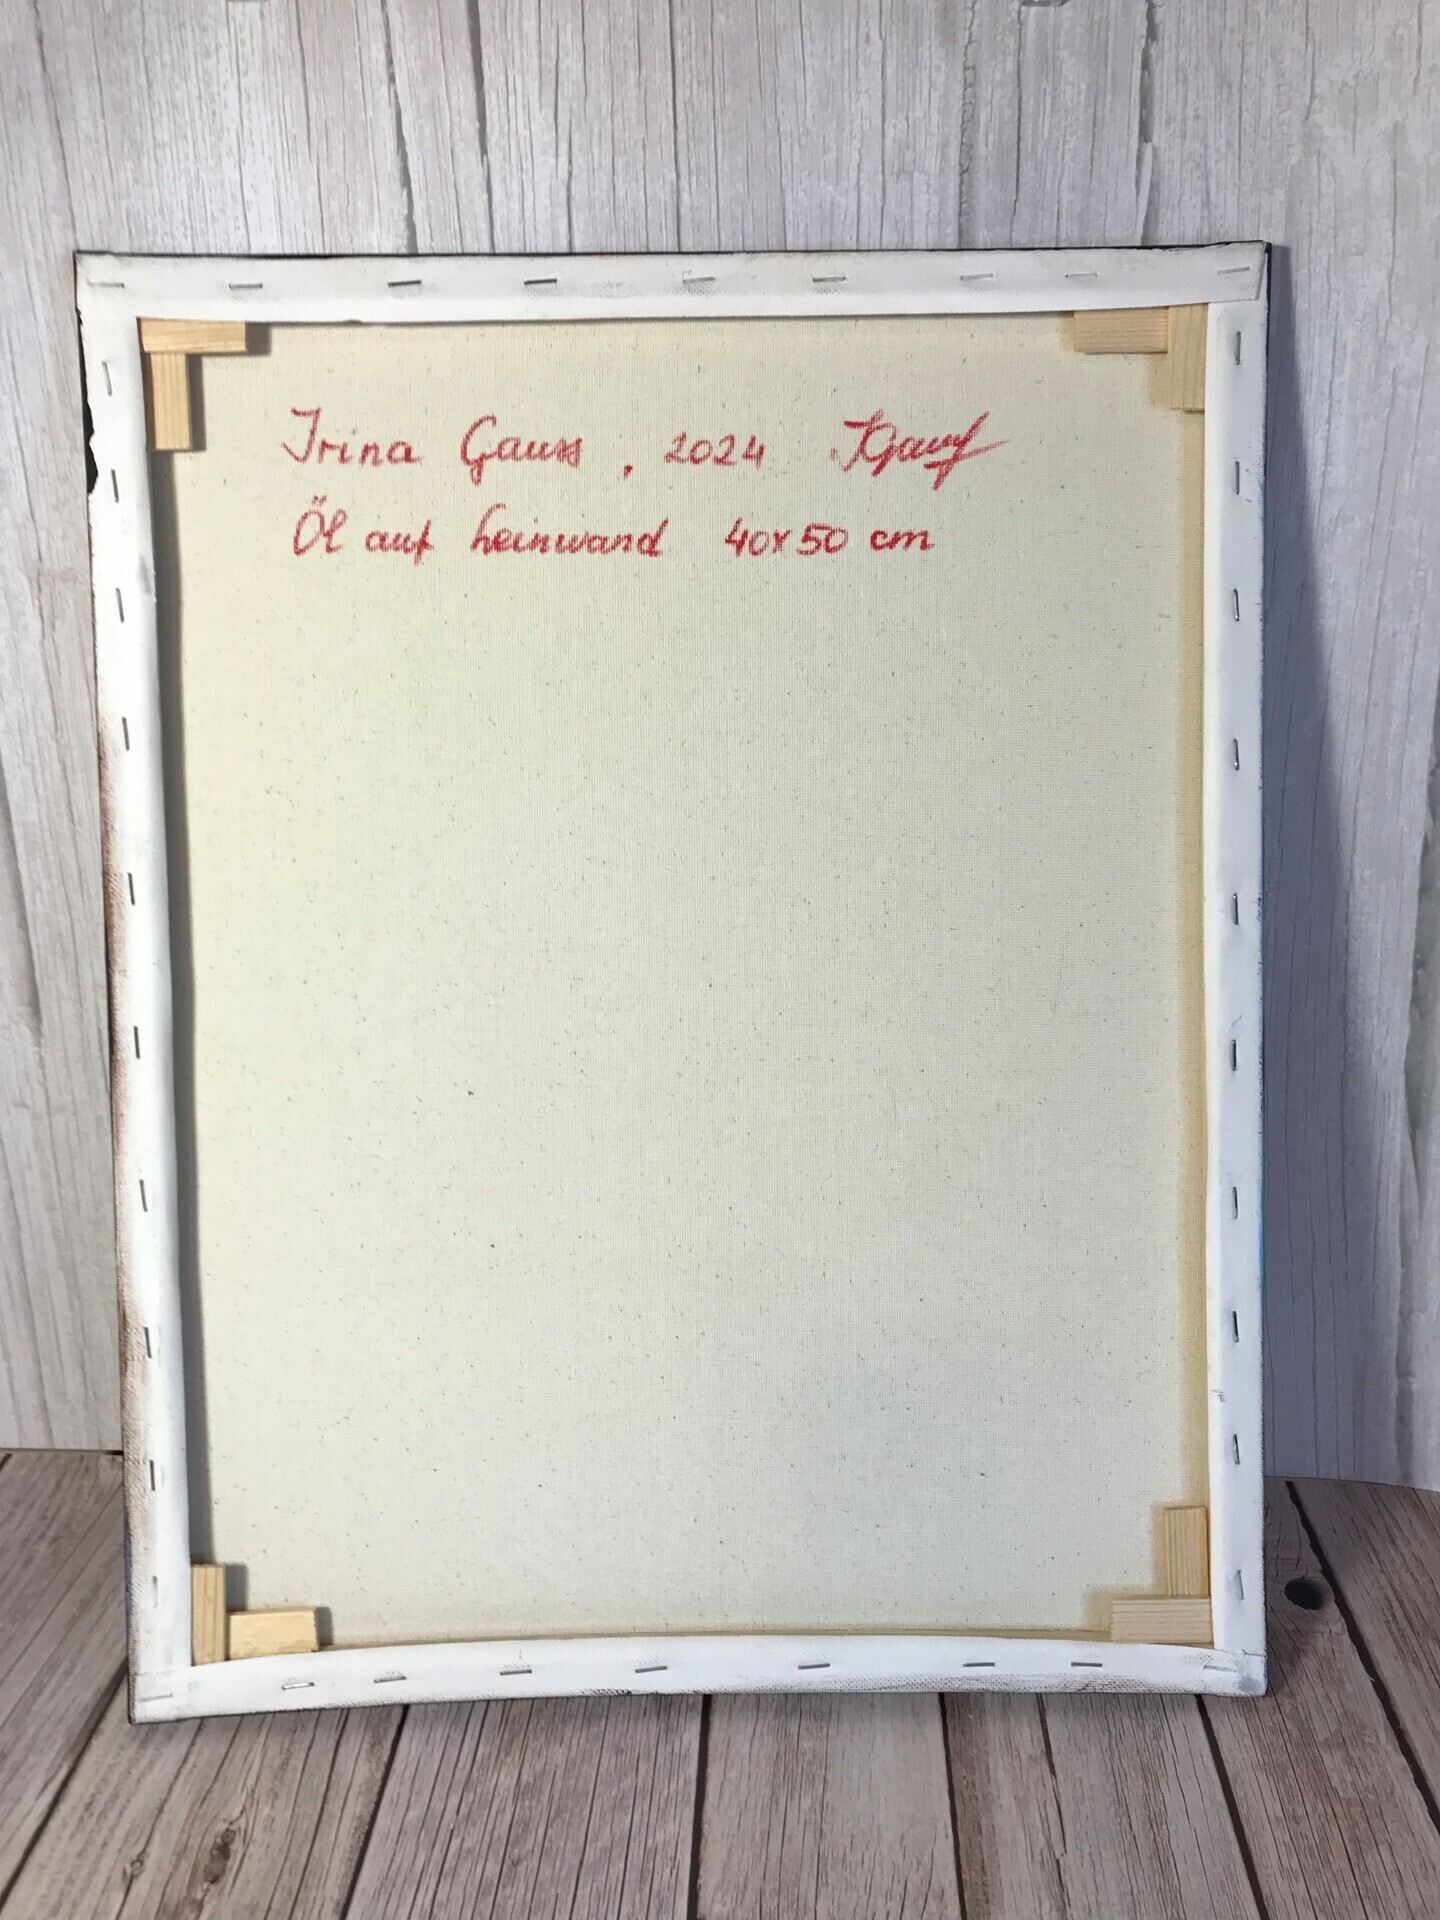 Irina Gauss, 2024 IGauß
Öl auf Leinwand 40x50 cm